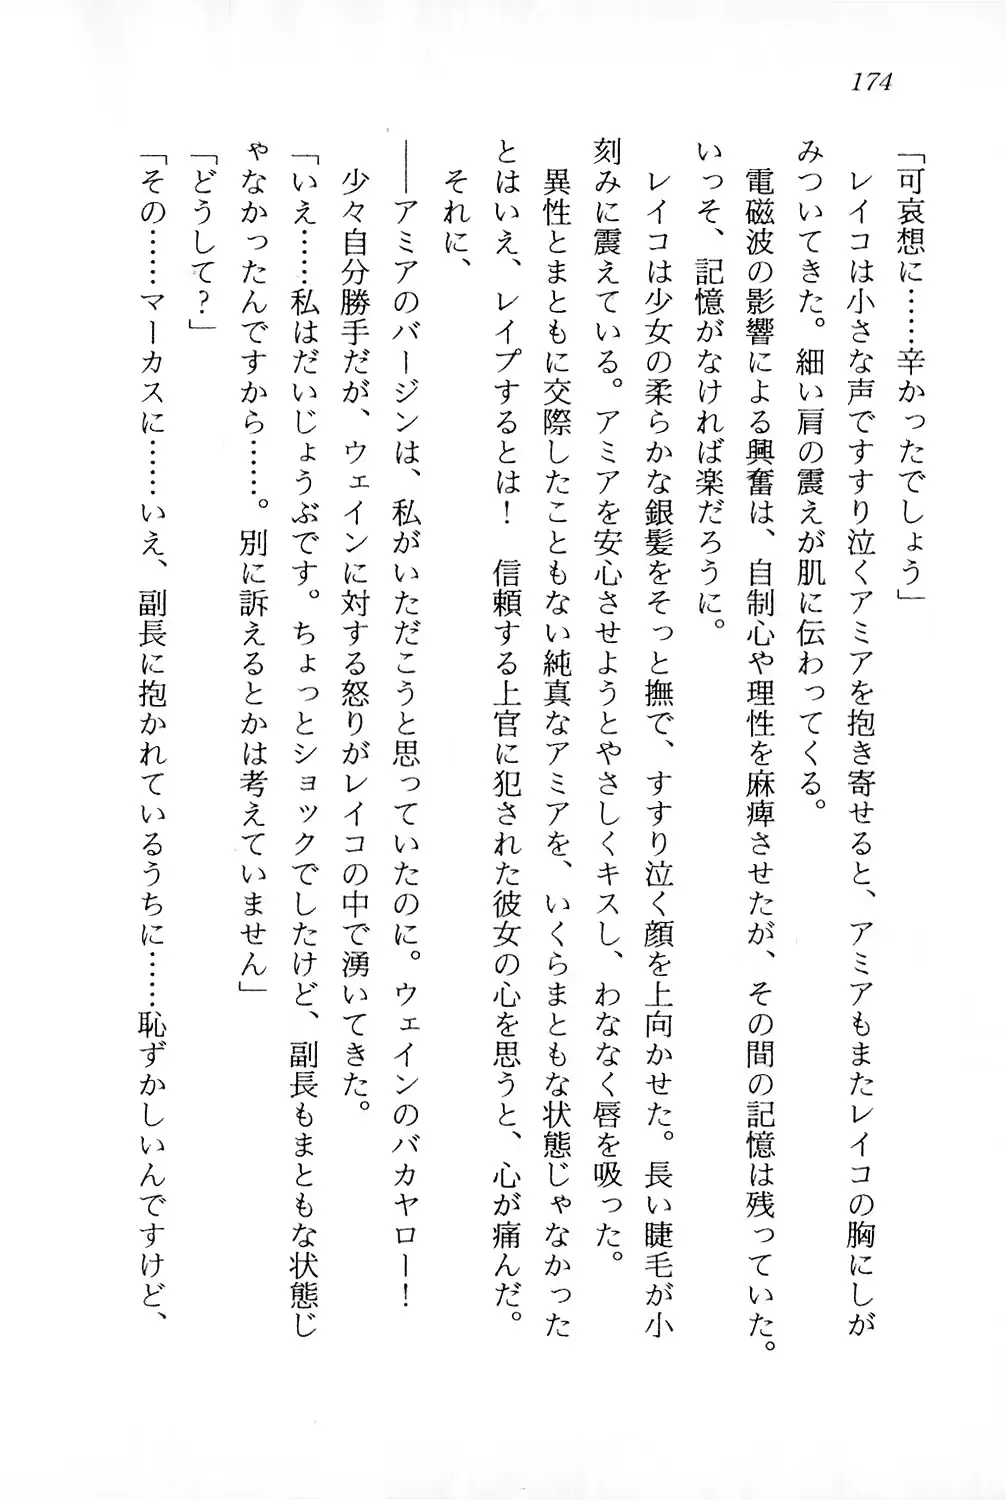 174
「可哀想に……辛かったでしょう」
レイコは小さな声ですすり泣くアミアを抱き寄せると、アミアもまたレイコの胸にしが
みついてきた。細い肩の震えが肌に伝わってくる。
電磁波の影響による興奮は、自制心や理性を麻痺させたが、その間の記憶は残っていた。
いっそ、記憶がなければ楽だろうに。
レイコは少女の柔らかな銀髪をそっと撫で、すすり泣く顔を上向かせた。長い睫毛が小
刻みに震えている。アミアを安心させようとやさしくキスし、わななく唇を吸った。
異性とまともに交際したこともない純真なアミアを、いくらまともな状態じゃなかった
とはいえ、レイプするとは！　信頼する上官に犯された彼女の心を思うと、心が痛んだ。
それに、
――アミアのバージンは、私がいただこうと思っていたのに。ウェインのバカヤロー！
少々自分勝手だが、ウェインに対する怒りがレイコの中で湧いてきた。
「いえ……私はだいじょうぶです。ちょっとショックでしたけど、副長もまともな状態じ
ゃなかったんですから……。別に訴えるとかは考えていません」
「どうして？」
「その……マーカスに……いえ、副長に抱かれているうちに……恥ずかしいんですけど、